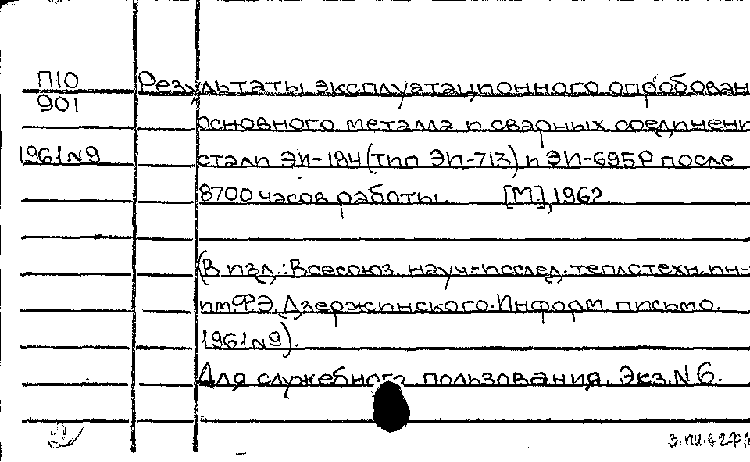 П10 Результаты эксплуатационного опробован
901
основного металла и сварных соединени
1961 N9 стали ЭИ-184 (тип ЭИ-713) и ЭИ-695Р после
8700 часов работы. [М], 1962
(В изд.: Всесоюз. науч-исслед. теплотехн. ин-
т им. Ф.Э. Дзержинского. Информ. письмо.
1961 N9).
Для служебного пользования. Экз. N 6.